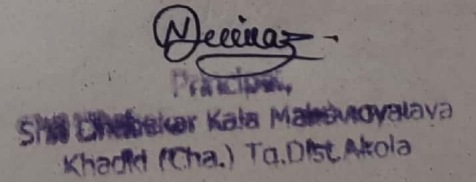 Principal,
Shri Dhabekar Kala Mahavidyalaya
Khadki (Cha.) Tq.Dist.Akola